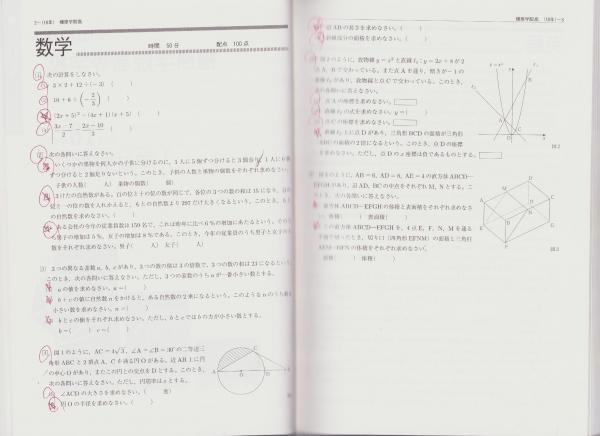 2—(18年) 橿原学院高
数学
時間 50分 配点 100点
次の計算をしなさい。
3×2+12÷(−3) ( )
16+6÷(−2/3) ( )
(2x+5)²−(4x+1)(x+5) ( )
(3x−7)/2−(2x−10)/3 ( )
次の各問いに答えなさい。
いくつかの果物を何人かの子供に分けるのに，1人に5個ずつ分けると3個余り，1人に6個
ずつ分けると2個足りないという。このとき，子供の人数と果物の個数をそれぞれ求めなさい。
子供の人数( 人) 果物の個数( 個)
3けたの自然数がある。百の位と十の位の数が同じで，各位の3つの数の和は15になり，
位と一の位の数を入れかえると，もとの自然数より297だけ大きくなるという。このとき，もと
の自然数を求めなさい。( )
ある会社の今年の従業員数は159名で，これは昨年に比べ6％の増加にあたるという。
男子の増加は5％，女子の増加は8％である。このとき，今年の従業員のうち男子と女子の
数をそれぞれ求めなさい。男子( 人) 女子( 人)
3つの異なる素数a，b，cがあり，3つの数の積は
このとき，次の各問いに答えなさい。ただし，3つの素数のうちaが一番小さい数とする。
aの値を求めなさい。a＝( )
b＋cの値に自然数nをかけると，ある自然数の2乗になるという。このようなnのうち最も
小さい数を求めなさい。n＝( )
bとcの値をそれぞれ求めなさい。ただし，bとcではbの方が小さい数とする。
b＝( ) c＝( )
図1のように，AC＝4√3，∠A＝∠B＝30°の二等辺三
角形ABCと2頂点A，Cを通る円Oがある。辺AB上に円
の中心Oがあり，またこの円との交点をDとする。このとき，
次の各問いに答えなさい。ただし，円周率はπとする。
∠ACDの大きさを求めなさい。( 度)
円Oの半径を求めなさい。( )
A
O
D
B
C
橿原学院高 (18年)—3
の長さを求めなさい。( )
斜線部分の面積を求めなさい。( )
図2のように，放物線y＝x²と直線ℓ₁：y＝2x＋8が2
点A，Bで交わっている。また点Aを通り，傾きが−1の
直線ℓ₂があり，放物線と点Cで交わっている。このとき，
次の各問いに答えなさい。
点Aの座標を求めなさい。
直線ℓ₂の式を求めなさい。y＝( )
点Cの座標を求めなさい。
直線ℓ₁上に点Dがあり，三角形BCDの面積が三角形
ABCの面積の2倍になるという。このとき，点Dの座標
を求めなさい。ただし，点Dのx座標は負であるものとする。
図2
図3のように，AB＝6，AD＝8，AE＝4の直方体ABCD—
EFGHがあり，辺AD，BCの中点をそれぞれM，Nとする。こ
のとき，次の各問いに答えなさい。
直方体ABCD—EFGHの体積と表面積をそれぞれ求めなさ
い。体積( ) 表面積( )
この直方体ABCD—EFGHを，4点E，F，N，Mを通る
平面で切ったとき，切り口(四角形EFNM)の面積と三角柱
AEM—BFNの体積をそれぞれ求めなさい。
面積( ) 体積( )
図3